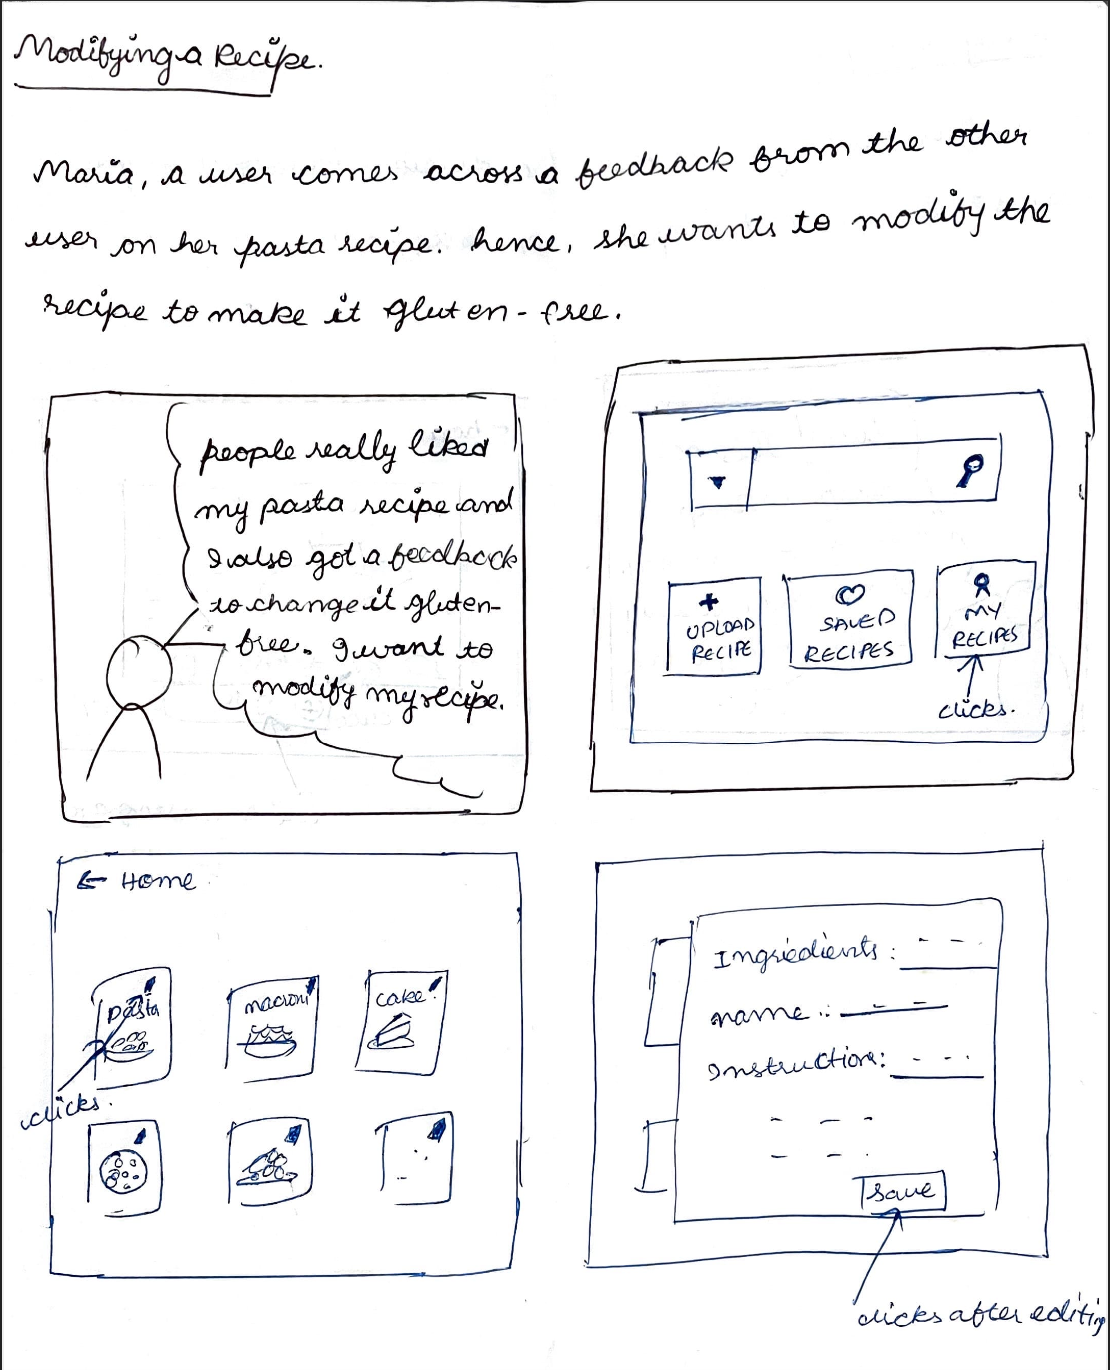 Modifying a Recipe.
Maria, a user comes across a feedback from the other
user on her pasta recipe. hence, she wants to modify the
recipe to make it gluten-free.
people really liked
my pasta recipe and
I also got a feedback
to change it gluten-
free. I want to
modify my recipe.
+
UPLOAD
RECIPE
SAVED
RECIPES
MY
RECIPES
clicks.
← Home
pasta
macroni
cake
clicks.
Ingriedients :
name :
Instructions:
save
clicks after editing